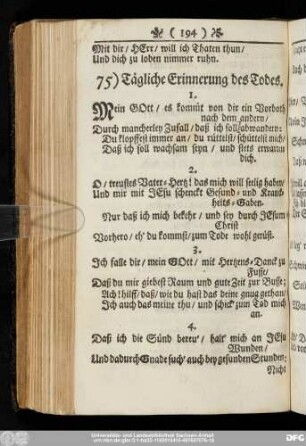 ( 194 )
Mit dir / HErr / will ich Thaten thun /
Und dich zu loben nimmer ruhn.
75) Tägliche Erinnerung des Todes.
1.
Mein GOtt / es kommt von dir ein Vorboth
nach dem andern /
Durch mancherley Zufall / daß ich soll abwandern:
Du klopffest immer an / du rüttelst / schüttelst mich /
Daß ich soll wachsam seyn / und stets erwarten
dich.
2.
O / treustes Vater-Hertz! das mich will seelig haben /
Und mir mit JEsu schenckt Gesund- und Kranck-
heits-Gaben.
Nur daß ich mich bekehr / und sey durch JEsum
Christ
Vorhero / eh' du kommst / zum Tode wohl gerüst.
3.
Ich falle dir / mein GOtt / mit Hertzens-Danck zu
Fusse /
Daß du mir giebest Raum und gute Zeit zur Busse;
Ach! hilff / daß / wie du hast das deine gnug gethan /
Ich auch das meine thu / und schick' zum Tod mich
an.
4.
Daß ich die Sünd bereu' / halt' mich an JEsu
Wunden /
Und dadurch Gnade such' auch bey gesunden Stunden;
Nicht
Universitäts- und Landesbibliothek Sachsen-Anhalt